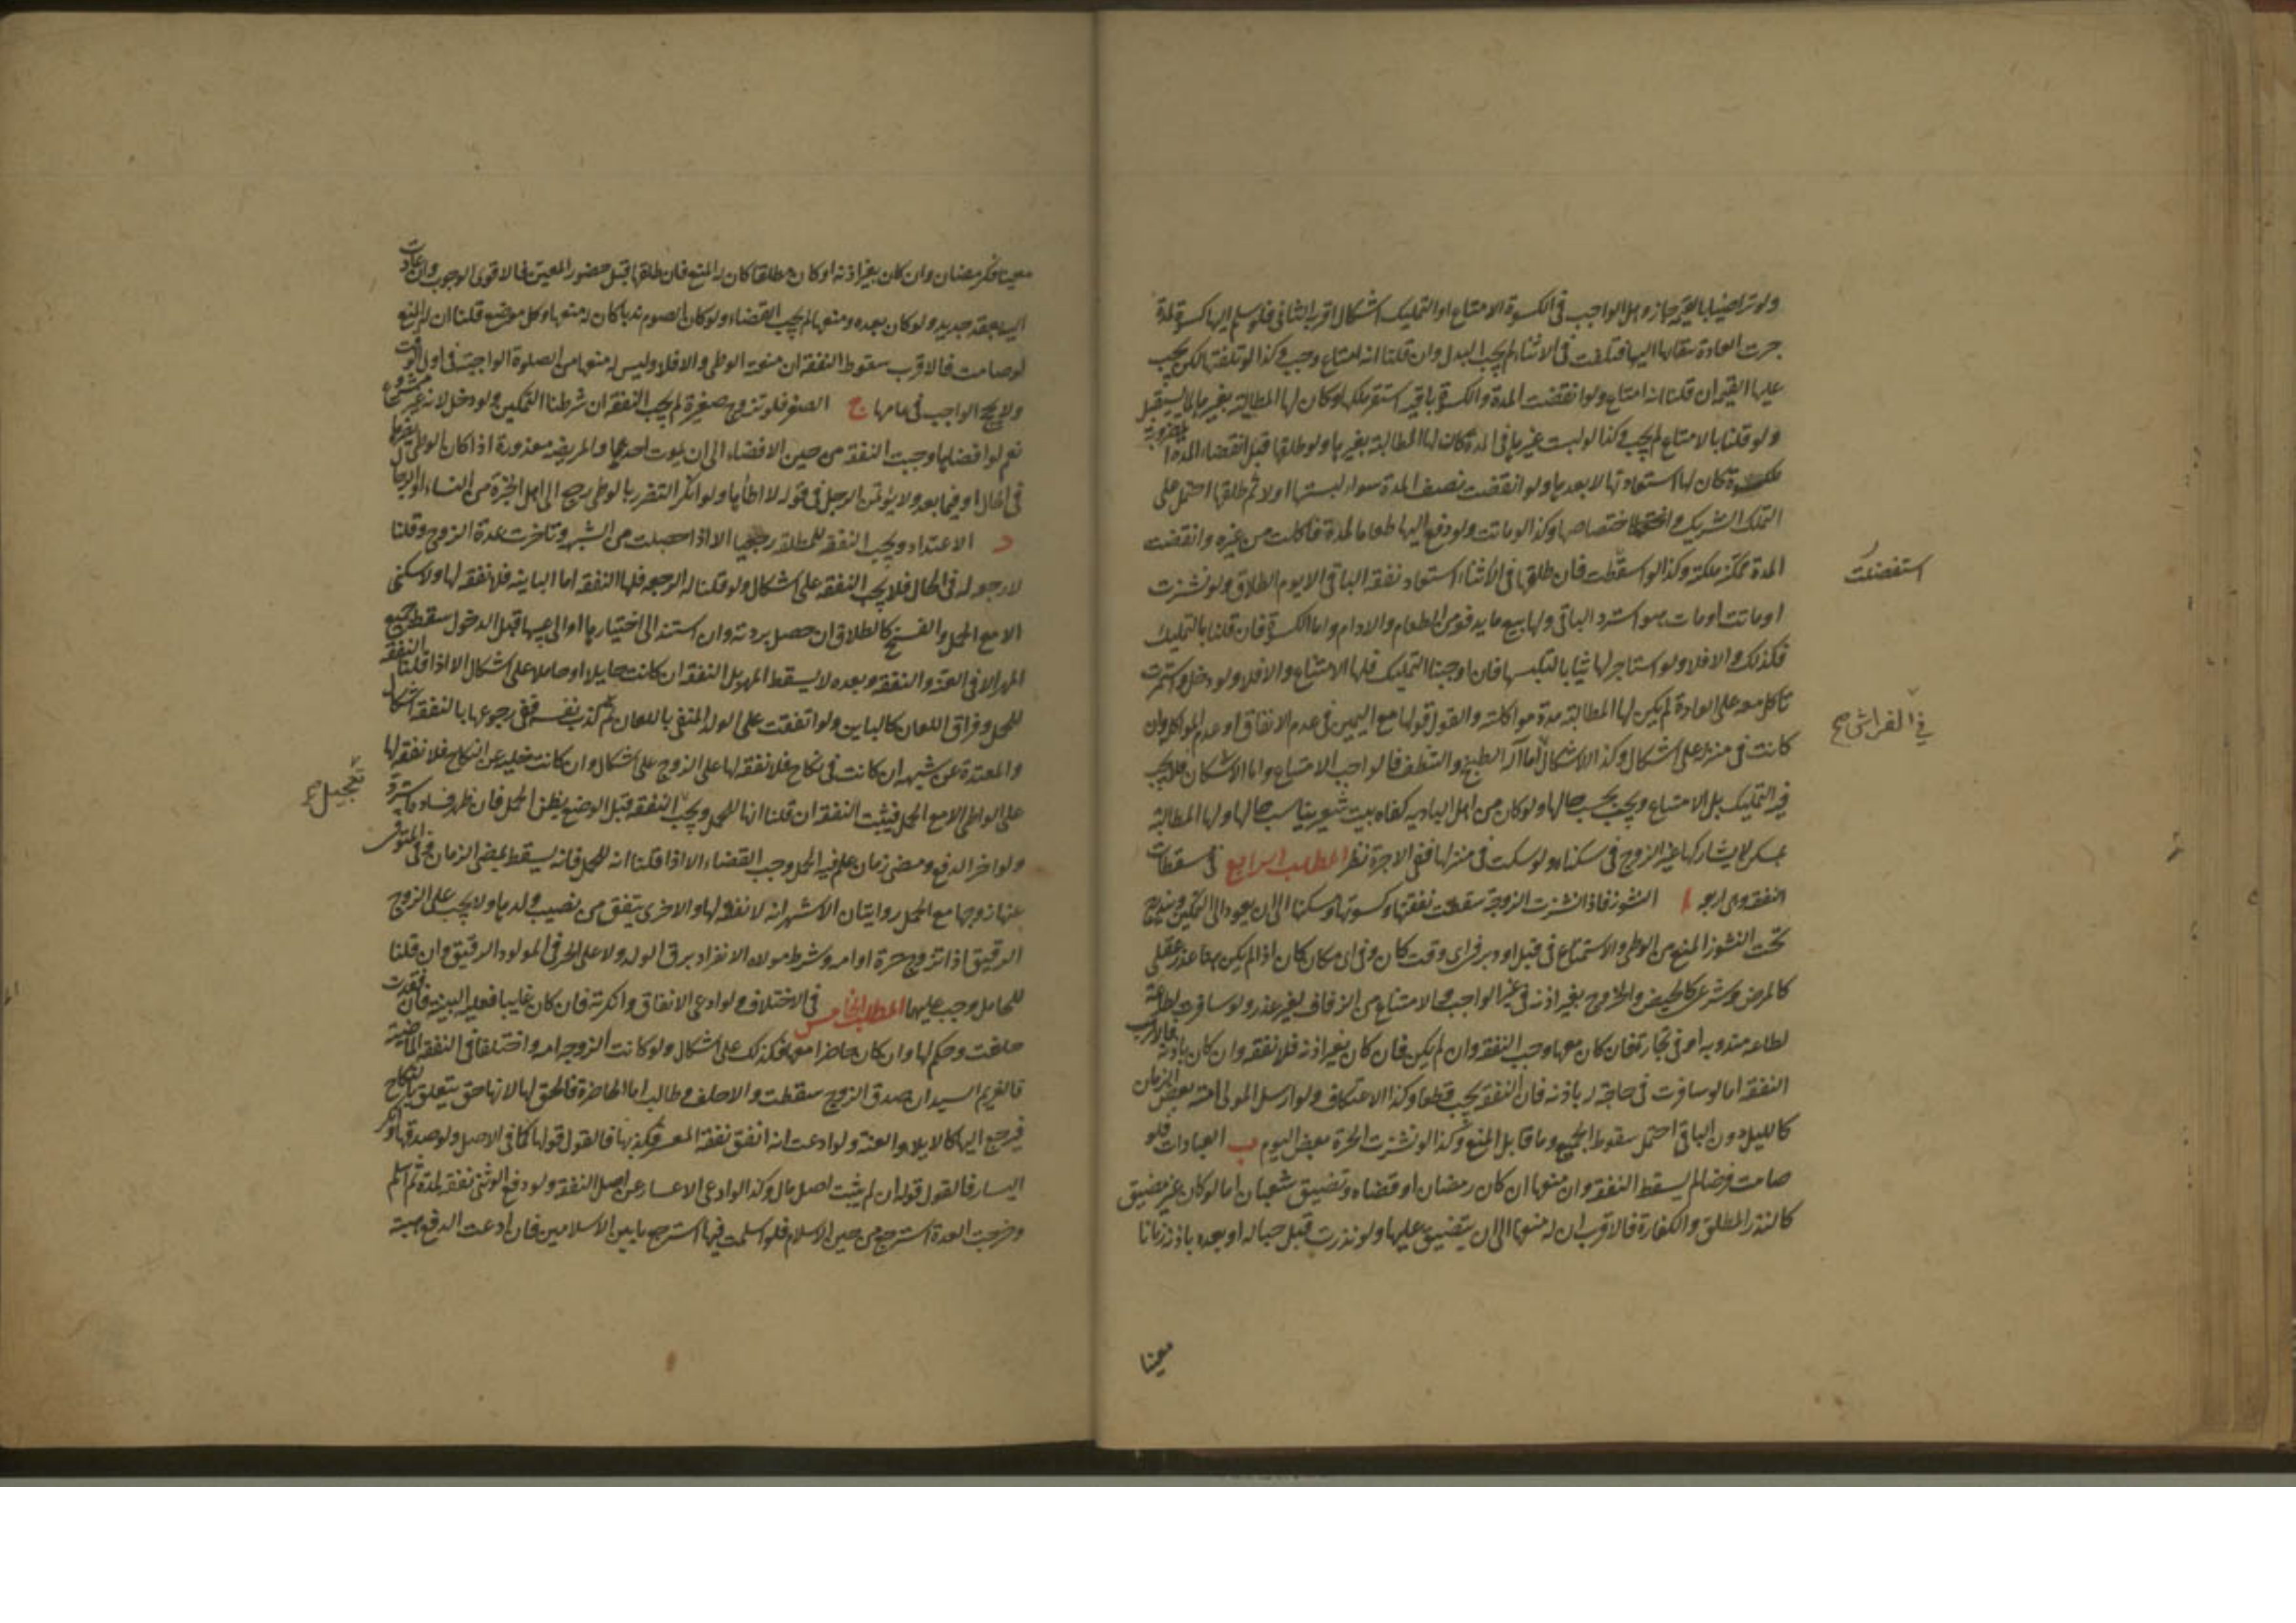 ولو تراضيا بالقيمة جاز وهل الواجب في الكسوة الامتاع او التمليك اشكال اقربه الثاني فلو سلم اليها كسوة لمدة
جرت العادة ببقائها اليها فتلفت في الاثناء لم يجب البدل وان قلنا انه امتاع وجب وكذا لو تلفتها لكن يجب
عليها القيمة ان قلنا انه امتاع ولو انقضت المدة والكسوة باقية استقر ملكها وكان لها المطالبة بغيرها لما يستقبل
ولو قلنا بالامتاع لم يجب وكذا لو لبست غيرها في المدة كان لها المطالبة بغيرها ولو طلقها قبل انقضاء المدة المضروبة
للكسوة كان له استعادتها لا بعدها ولو انقضت نصف المدة سواء لبستها او لا ثم طلقها احتمل على
التملك التشريك و اختصاصها وكذا لو ماتت ولو دفع اليها طعاما لمدة فاكلت من غيره وانقضت
المدة تمكنة ملكته وكذا لو استفضلت فان طلقها في الاثناء استعاد نفقة الباقي الا يوم الطلاق ولو نشزت
او ماتت او مات هو استرد الباقي ولها بيع ما يدفع من الطعام والادام واما الكسوة فان قلنا بالتمليك
فكذلك والا فلا ولو استاجر لها ثيابا لتلبسها فان اوجبنا التمليك فلها الامتناع والا فلا ولو دخل واستمرت
تاكل معه على العادة لم يكن لها المطالبة بمدة مواكلته والقول قولها مع اليمين في عدم الانفاق او عدم المواكلة وان
كانت في منزله على اشكال وكذا الاشكال في الفراش اما آلة الطبخ والتنظف فالواجب الامتاع واما الاسكان فلا يجب
فيه التمليك بل الامتاع ويجب بحسب حالها ولو كان من اهل البادية كفاه بيت شعر يناسب حالها ولها المطالبة
بمسكن لا يشاركها غير الزوج في سكناه ولو سكنت في منزلها ففي الاجرة نظر المطلب الرابع في مسقطات
النفقة وهي اربعة ا النشوز فاذا نشزت الزوجة سقطت نفقتها وكسوتها وسكناها الى ان يعود الى التمكين ويندرج
تحت النشوز المنع من الوطي والاستمتاع في قبل او دبر في اى وقت كان وفي اى مكان كان اذا لم يكن بها عذر عقلي
كالمرض وشرعي كالحيض والخروج بغير اذنه في غير الواجب والامتناع من الزفاف بغير عذر ولو سافرت لطاعة
لطاعة مندوبة او في تجارة فان كان معها وجب النفقة وان لم يكن فان كان بغير اذنه فلا نفقة وان كان باذنه فالاقرب
النفقة اما لو سافرت في حاجة له باذنه فان النفقة يجب قطعا وكذا الاعتكاف ولو ارسل المولى امته بعض الزمان
كالليل دون الباقي احتمل سقوط الجميع وما قابل المنع وكذا لو نشزت الحرة بعض اليوم ب العبادات فلو
صامت فرضا لم يسقط النفقة وان منعها ان كان رمضان او قضاه وتضيق شعبان اما لو كان غير مضيق
كالنذر المطلق والكفارة فالاقرب ان له منعها الى ان يتضيق عليها ولو نذرت قبل حباله او بعده باذنه زمانا
معينا
استفضلت
في الفراش صح
معينا فكرمضان وان كان بغير اذنه او كان مطلقا كان له المنع فان طلقها قبل حضور المعين فالاقوى الوجوب وان عادت
اليه بعقد جديد ولو كان بعده ومنعها لم يجب القضاء ولو كان الصوم ندبا كان له منعها وكل موضع قلنا ان له المنع
لو صامت فالاقرب سقوط النفقة ان منعته الوطي والا فلا وليس له منعها من الصلوة الواجبة في اول الوقت
ولا الحج الواجب في عامها ج الصغر فلو تزوج صغيرة لم يجب النفقة ان شرطنا التمكين ولو دخل لانه غير مشروع
نعم لو افضاها وجبت النفقة من حين الافضاء الى ان يموت احدهما والمريضة معذورة اذا كان الوطي يضر بها
في الحال او فيما بعد ولا يؤتمن الرجل في قوله لا اطأها ولو انكر التضرر بالوطي رجع الى اهل الخبرة من النساء او الرجال
د الاعتداد ويجب النفقة للمطلقة رجعيا الا اذا حبلت من الشبهة وتاخرت عدة الزوج وقلنا
لا رجوع له في الحال فلا يجب النفقة على اشكال ولو قلنا له الرجعة فلها النفقة اما الباينة فلا نفقة لها ولا سكنى
الا مع الحمل والفسخ كالطلاق ان حصل بردته وان استند الى اختيارها او الى عيبها قبل الدخول سقط جميع
المهر الا في العنة والنفقة وبعده لا يسقط المهر بل النفقة ان كانت حايلا او حاملا على اشكال الا اذا قلنا النفقة
للحمل وفراق اللعان كالباين ولو اتفقت على الولد المنفي باللعان ثم كذب نفسه ففي رجوعها بالنفقة اشكال
والمعتدة عن شبهة ان كانت في نكاح فلا نفقة لها على الزوج على اشكال وان كانت خلية عن النكاح فلا نفقة لها
على الواطي الا مع الحمل فيثبت النفقة ان قلنا انها للحمل ويجب تعجيل النفقة قبل الوضع بظن الحمل فان ظهر فساده استرد
ولو اخر الدفع ومضى زمان علم فيه الحمل وجب القضاء الا اذا قلنا انه للحمل فانه يسقط بمضى الزمان وفي المتوفى
عنها زوجها مع الحمل روايتان الاشهر انه لا نفقة لها والاخرى ينفق من نصيب ولدها ولا يجب على الزوج
الرقيق اذا تزوج حرة او امة وشرط مولاه الانفراد برق الولد ولا على الحر في المولود الرقيق وان قلنا
للحامل وجب عليهما المطلب الخامس في الاختلاف ولو ادعى الانفاق وانكرته فان كان غايبا فعليه البينة فان فقدت
حلفت وحكم لها وان كان حاضرا معها فكذلك على اشكال ولو كانت الزوجة امة واختلفا في النفقة الماضية
فالغريم السيد ان صدق الزوج سقطت والا حلف وطالب اما الحاضرة فالحق لها لانها حق يتعلق بالنكاح
فيرجع اليها كالايلاء والعنة ولو ادعت انه انفق نفقة المعسر فكذبها فالقول قولها كما في الاصل ولو صدقها وانكر
اليسار فالقول قوله ان لم يثبت اصل مال وكذا لو ادعى الاعسار عن اصل النفقة ولو دفع الوثني نفقة لمدة ثم اسلم
وخرجت العدة استرجع من حين الاسلام فلو اسلمت فيها استرجع ما بين الاسلامين فان ادعت الدفع هبة
تعجيل صح